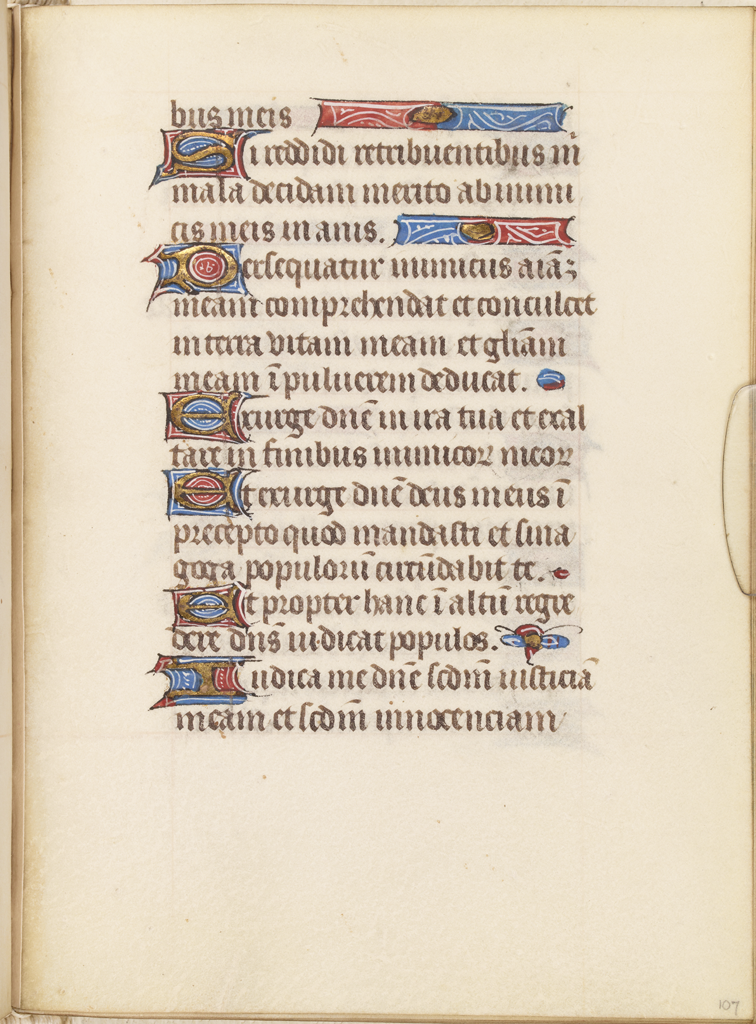 bus meis
Si reddidi retribuentibus m̄
mala decidam merito ab inimi
cis meis inanis.
Persequatur inimicus aīaȝ
meam comprehendat et conculcet
in terra vitam meam et gl̄iam
meam ī puluerem deducat.
Exurge dn̄e in ira tua et exal
tare in finibus inimicoꝝ meoꝝ
Et exurge dn̄e deus meus ī
precepto quod mandasti et sina
goga populorū circūdabit te.
Et propter hanc ī altū regre
dere dn̄s iudicat populos.
Iudica me dn̄e scd̄m iusticiā
meam et scd̄m innocenciam
107